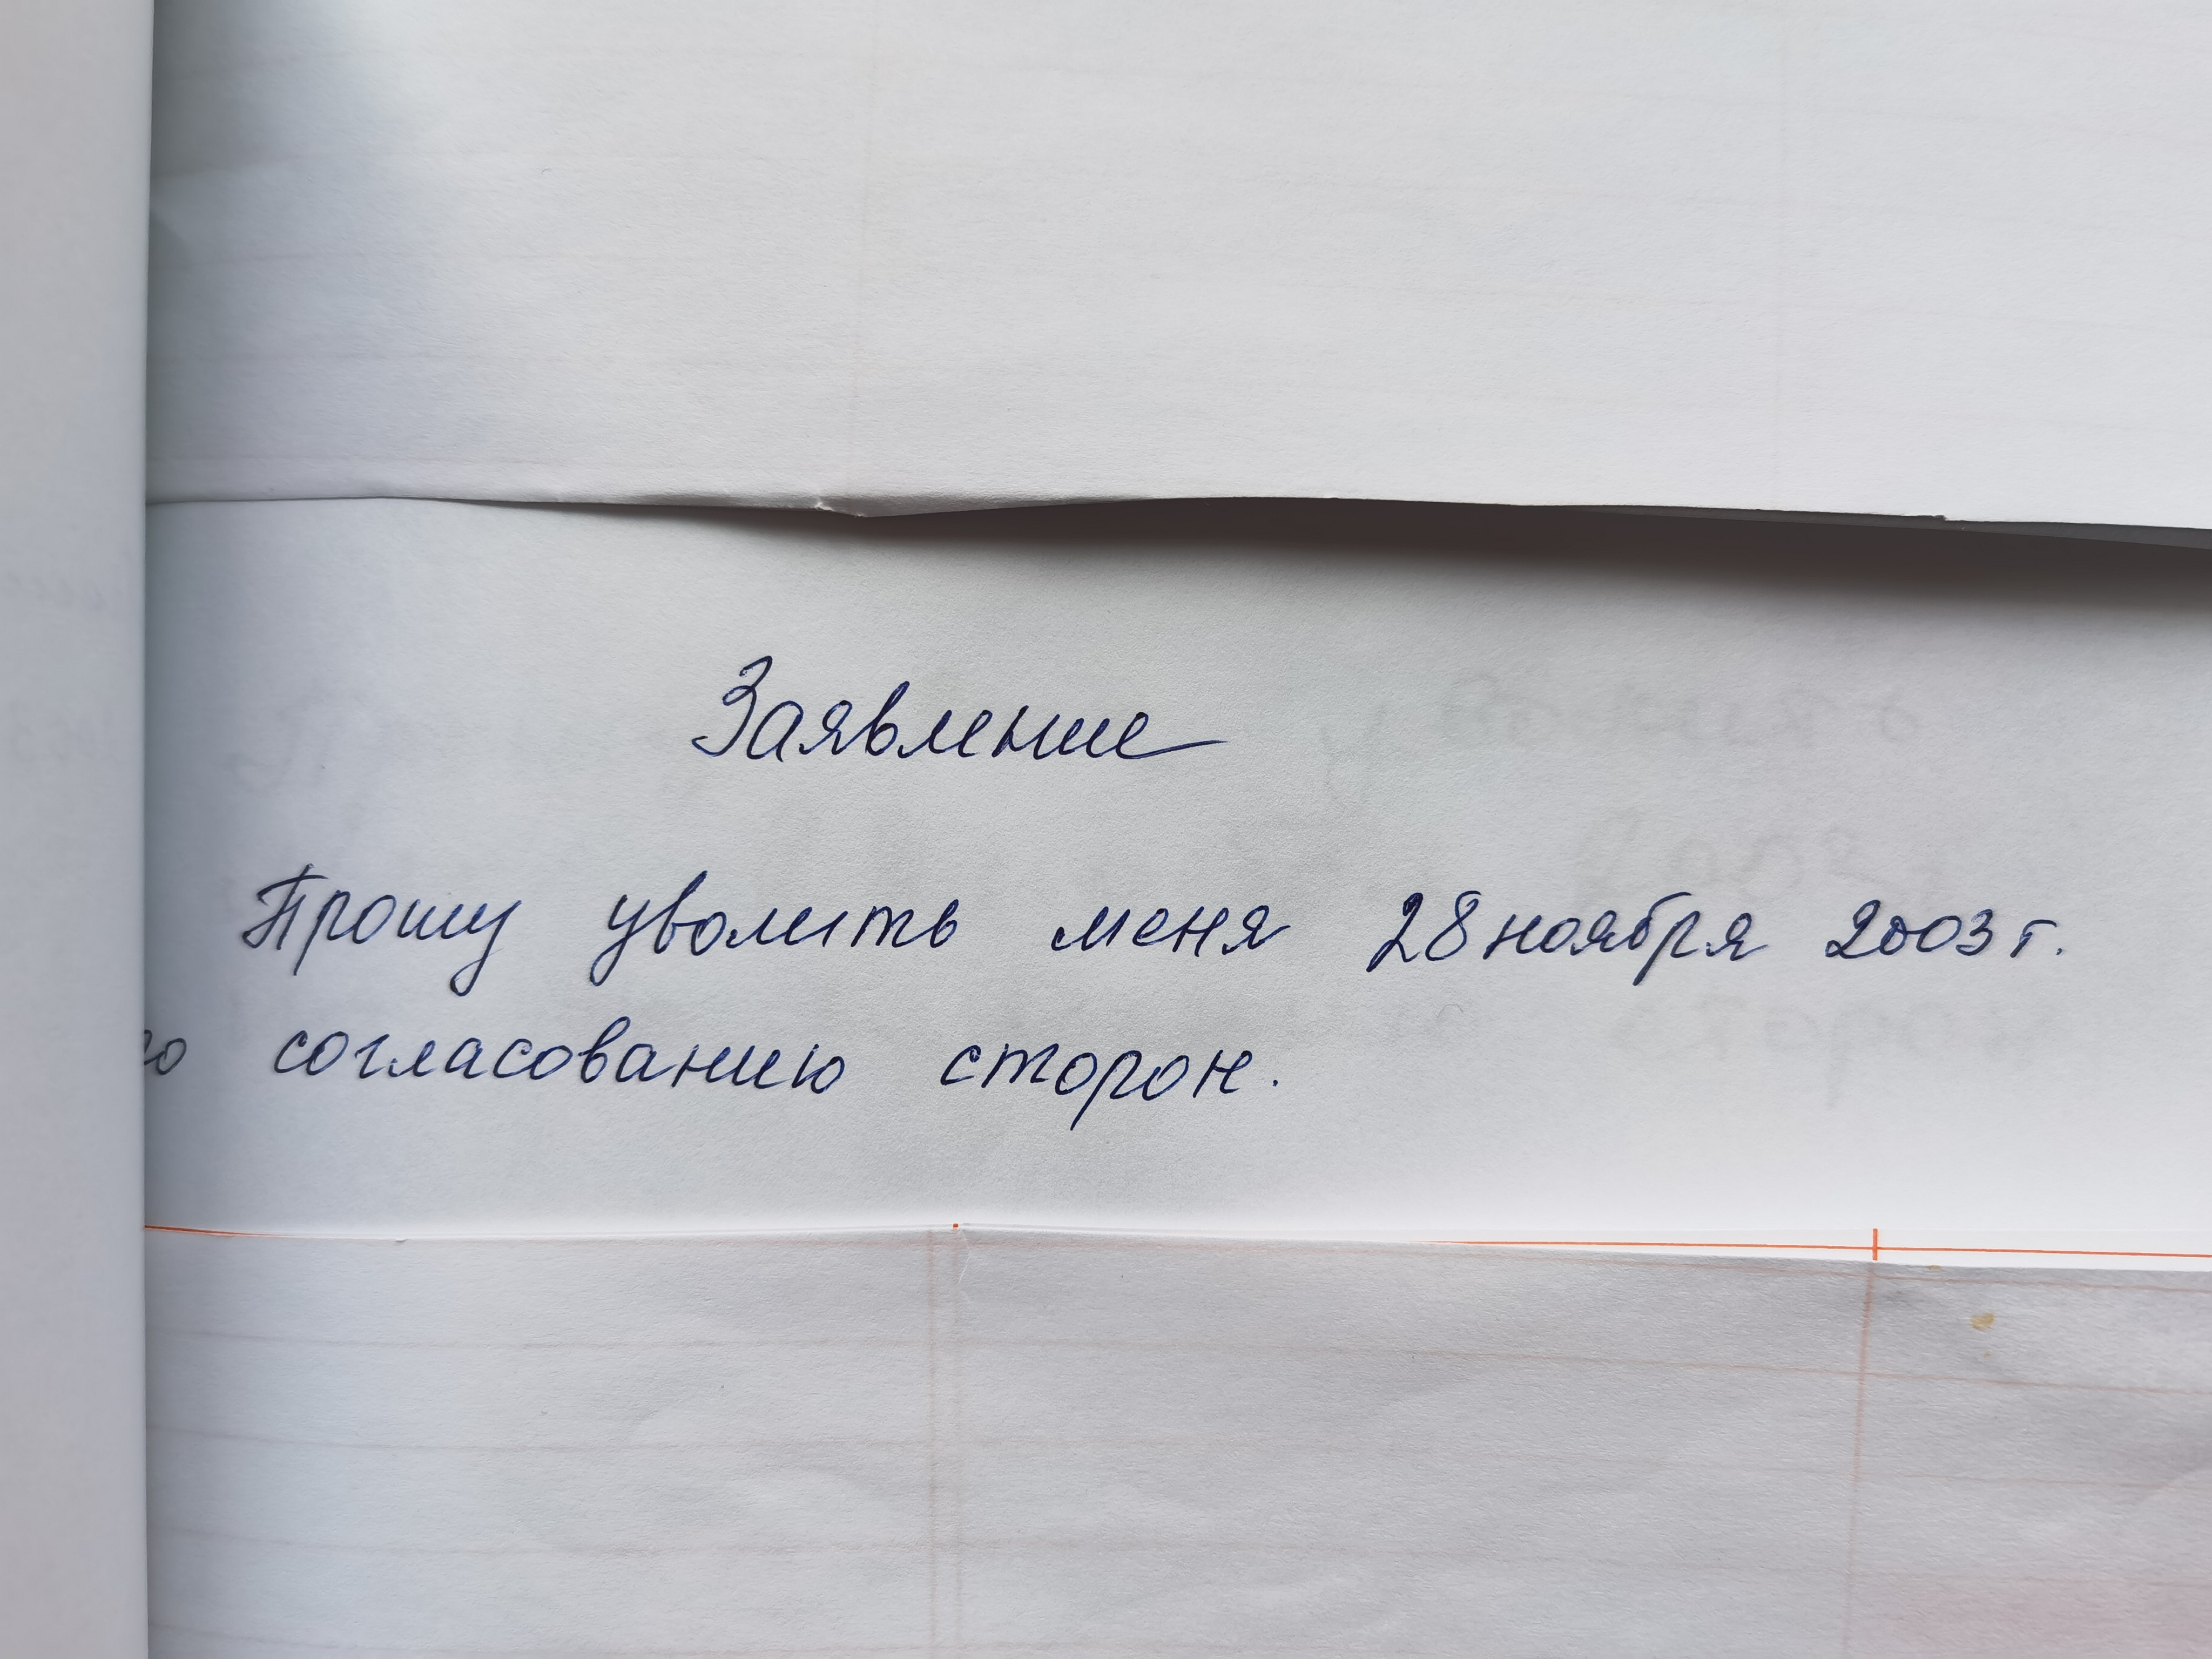 Заявление
Прошу уволить меня 28 ноября 2003 г.
по согласованию сторон.